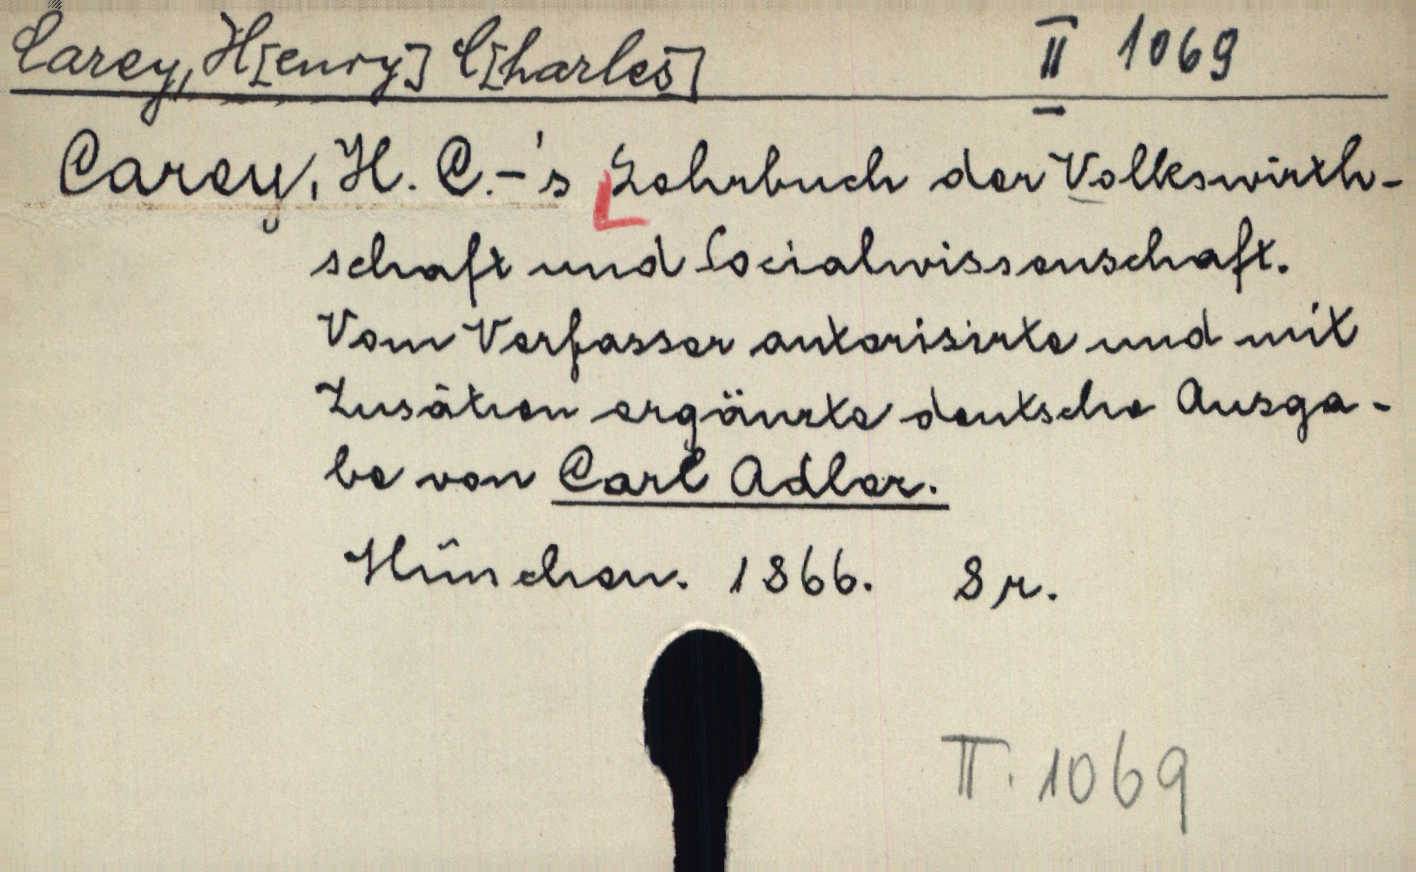 Carey, H[enry] C[harles] II 1069
Carey, H. C.-'s Lehrbuch der Volkswirth-
schaft und Socialwissenschaft.
Vom Verfasser autorisirte und mit
Zusätzen ergänzte deutsche Ausga-
be von Carl Adler.
München. 1866. 8r.
II. 1069